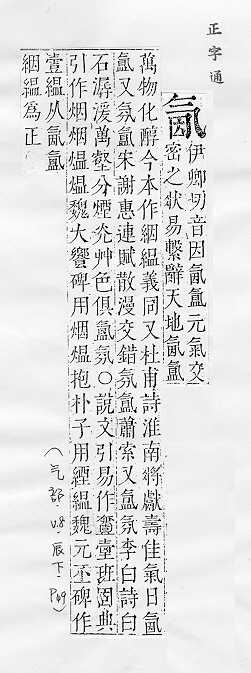 正字通
氤
伊卿切音因氤氳元氣交
密之狀易繫辭天地氤氳
萬物化醇今本作絪縕義同又杜甫詩淮南將獻壽佳氣日氤
氳又氛氳宋謝惠連賦散漫交錯氛氳蕭索又氳氛李白詩白
石潺湲萬壑分煙炎艸色俱氳氛○說文引易作壹壺班固典
引作烟烟熅熅魏大饗碑用烟熅抱朴子用煙縕魏元丕碑作
壹縕从氤氳
絪縕為正
(气部 v.8.辰下. P49)